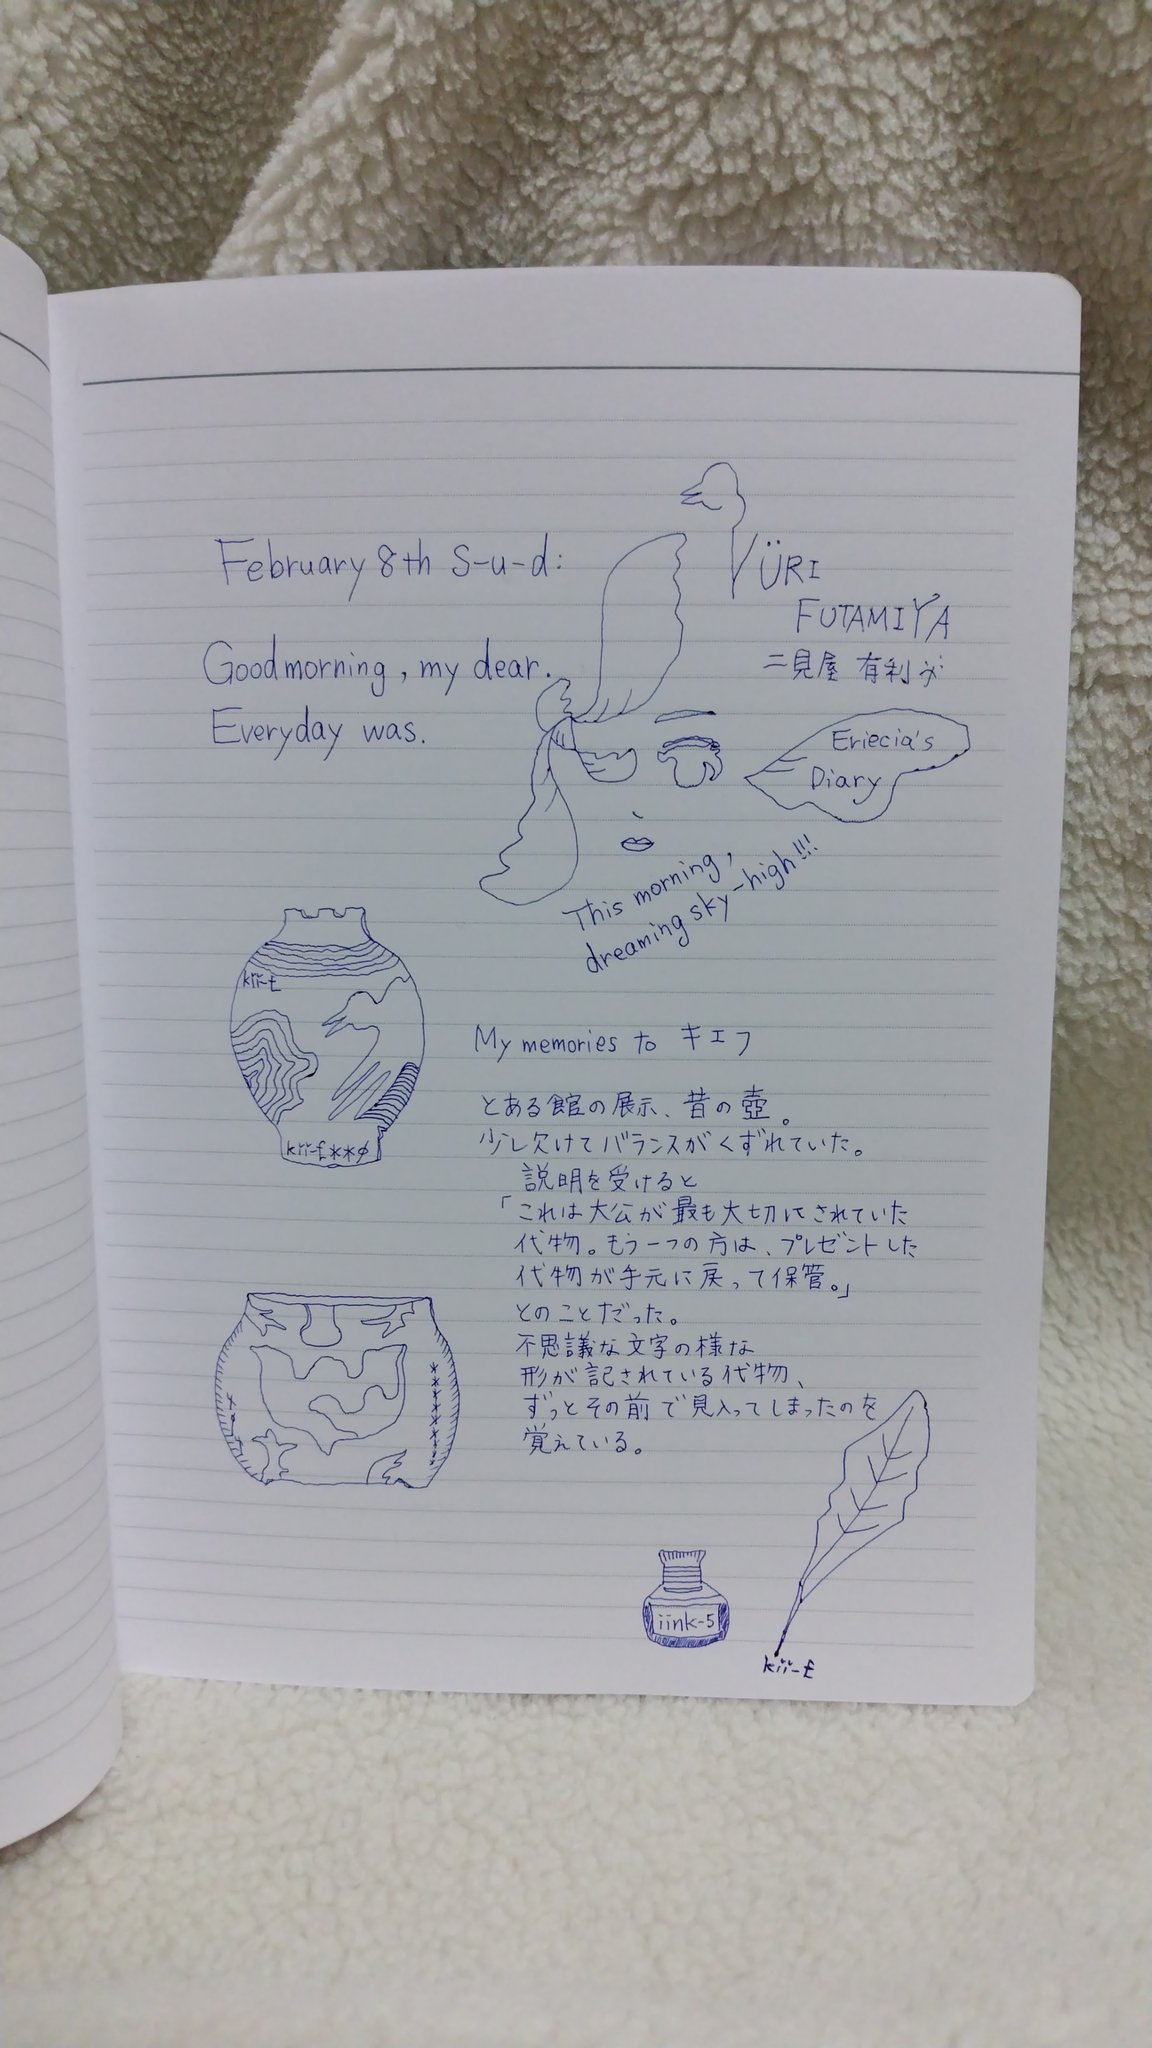 February 8th S-u-d:
YÜRI
FUTAMIYA
二見屋 有利
Goodmorning, my dear.
Everyday was.
Eriecia's
Diary
This morning,
dreaming sky-high!!!
kii-£
kii-£**∅
My memories to キエフ
とある館の展示、昔の壺。
少し欠けてバランスがくずれていた。
説明を受けると
「これは大公が最も大切にされていた
代物。もう一つの方は、プレゼントした
代物が手元に戻って保管。」
とのことだった。
不思議な文字の様な
形が記されている代物、
ずっとその前で見入ってしまったのを
覚えている。
iink-5
kii-£